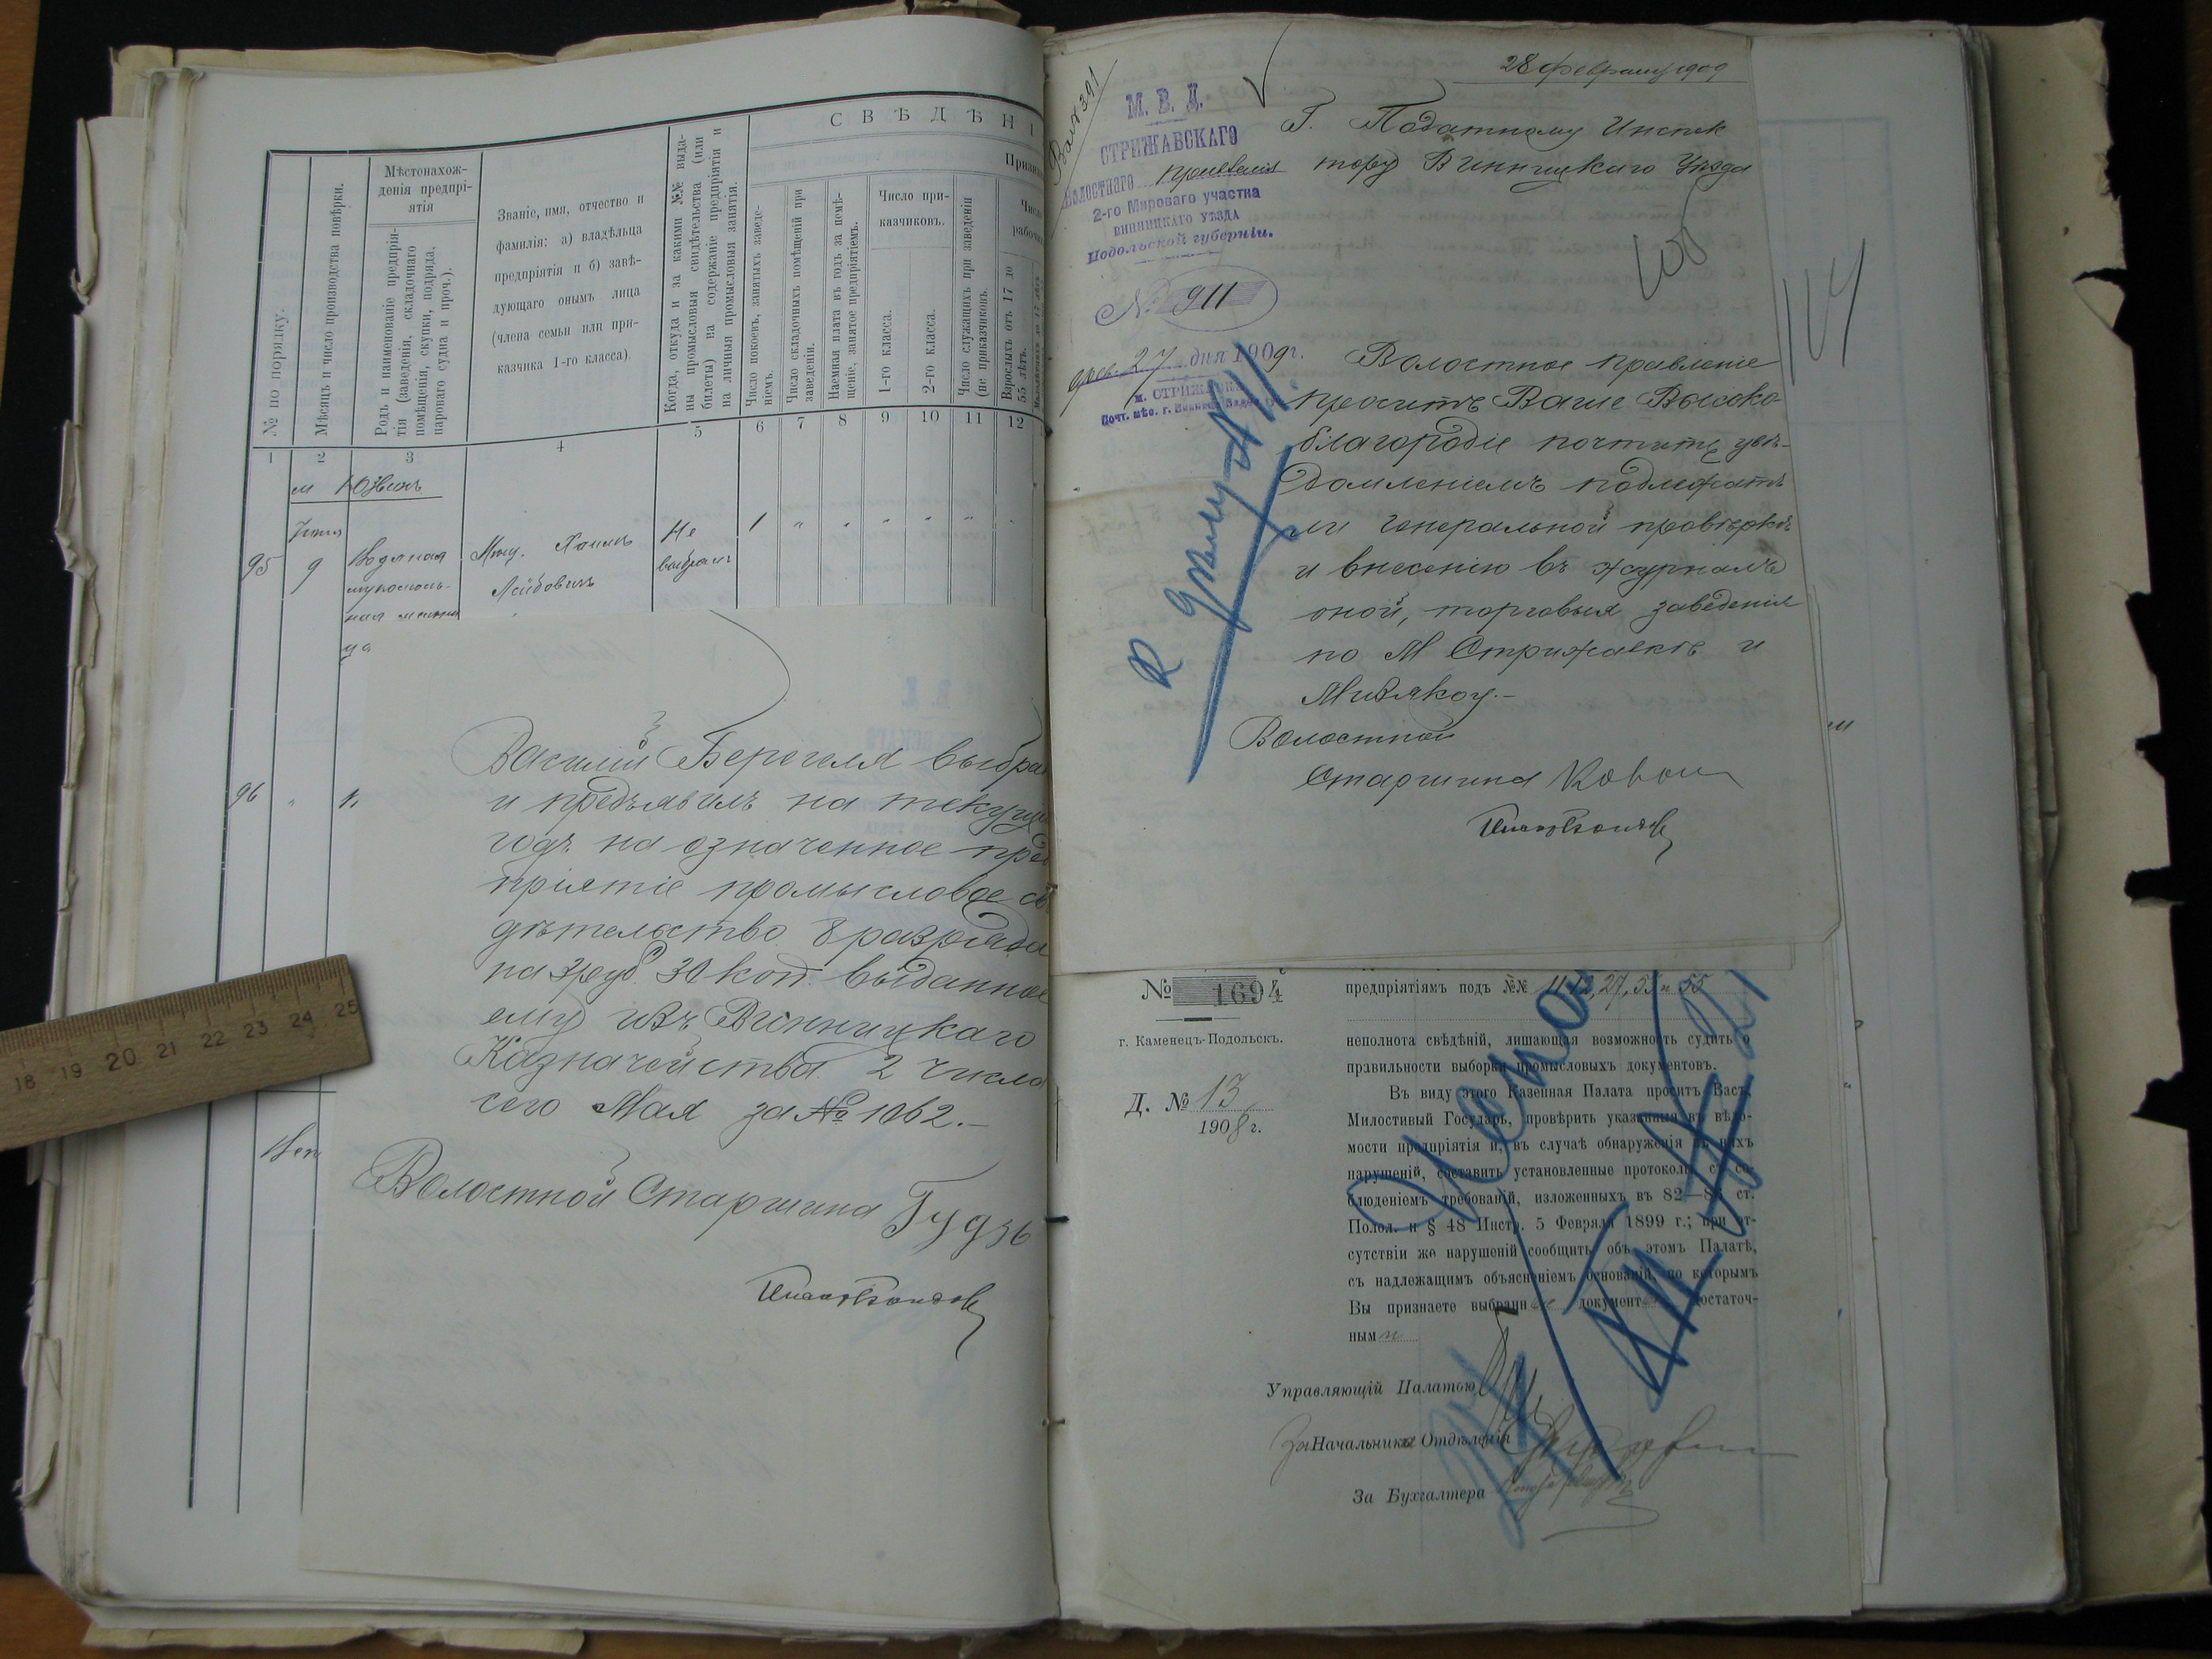 СВѢДѢНІ
№ по порядку.
Мѣсяцъ и число производства повѣрки.
Мѣстонахож-
денія предпрі-
ятія
Родъ и наименованіе предпрія-
тія (заведенія, складочнаго
помѣщенія, скупки, подряда,
парового судна и проч.).
Званіе, имя, отчество и
фамилія: а) владѣльца
предпріятія и б) завѣ-
дующаго онымъ лица
(члена семьи или при-
казчика 1-го класса).
Когда, откуда и за какими №№ выда-
ны промысловыя свидѣтельства (или
билеты) на содержаніе предпріятія и
на личныя промысловыя занятія.
Число покоевъ, занятыхъ заведе-
ніемъ.
Число складочныхъ помѣщеній при
заведеніи.
Наемная плата въ годъ за помѣ-
щеніе, занятое предпріятіемъ.
Число при-
казчиковъ.
1-го класса.
2-го класса.
Число служащихъ при заведеніи
(не приказчиковъ.
Взрослыхъ отъ 17 до
55 лѣтъ.
1 2 3 4 5 6 7 8 9 10 11 12
95 9 Водяная
мукомоль-
ная мельни
ца
Хаимъ
Лейбовичъ
Не
выбралъ
1
96
Василій Берегеля выбра
и предъявилъ на текущ
годъ на означенное пред
пріятіе промысловое св
дѣтельство 8 разряда
на 3 руб. 30 коп. выданное
ему изъ Винницкаго
Казначейства 2 числа
сего Мая за № 1062.–
Волостной Старшина Гудзь
28 февраля 1909
М. В. Д.
СТРИЖАВСКАГО
Волостного правленія
2-го Мирового участка
ВИННИЦКАГО УѢЗДА
Подольской губерніи.
№ 911
27 дня 1909 г.
м. СТРИЖАВКА
Г. Податному Инспек
тору Винницкаго Уѣзда
114
Волостное правленіе
проситъ Ваше Высоко
благородіе почтить увѣ-
домленіемъ подлежатъ
ли генеральной провѣркѣ
и внесенію въ журналъ
оной, торговыя заведенія
по М Стрижавкѣ и
Мизякоу.–
Волостной
Старшина
№ 1694
г. Каменецъ-Подольскъ.
Д. № 13
1908 г.
предпріятіямъ подъ №№ 11 12, 27, 53 и 55
неполнота свѣдѣній, лишающая возможность судить о
правильности выборки промысловыхъ документовъ.
Въ виду этого Казенная Палата проситъ Васъ,
Милостивый Государь, провѣрить указанныя въ вѣдо-
мости предпріятія и, въ случаѣ обнаруженія въ нихъ
нарушеній, составить установленные протоколы съ со-
блюденіемъ требованій, изложенныхъ въ 82—85 ст.
Полож. и § 48 Инстр. 5 Февраля 1899 г.; при от-
сутствіи же нарушеній сообщить объ этомъ Палатѣ,
съ надлежащимъ объясненіемъ основаній, по которымъ
Вы признаете выбранные документы достаточ-
ными
Управляющій Палатою
За Начальника Отдѣленія
За Бухгалтера
18 19 20 21 22 23 24 25